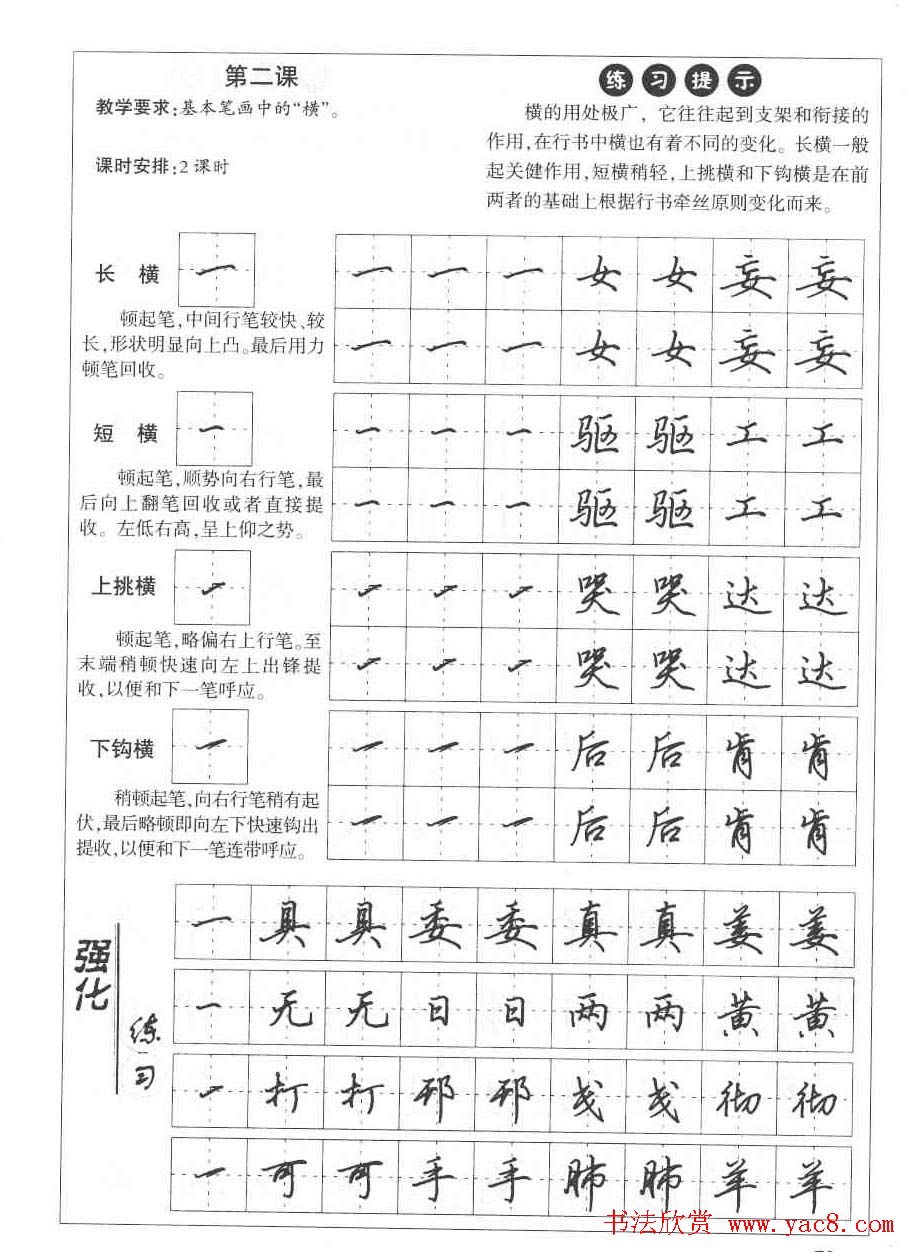 第二课
教学要求:基本笔画中的“横”。
课时安排:2课时
练习提示
横的用处极广，它往往起到支架和衔接的
作用,在行书中横也有着不同的变化。长横一般
起关健作用,短横稍轻,上挑横和下钩横是在前
两者的基础上根据行书牵丝原则变化而来。
长横 一
顿起笔,中间行笔较快、较
长,形状明显向上凸。最后用力
顿笔回收。
一 一 一 女 女 妄 妄
一 一 一 女 女 妄 妄
短横 一
顿起笔,顺势向右行笔,最
后向上翻笔回收或者直接提
收。左低右高,呈上仰之势。
一 一 一 驱 驱 工 工
一 一 一 驱 驱 工 工
上挑横 一
顿起笔,略偏右上行笔。至
末端稍顿快速向左上出锋提
收,以便和下一笔呼应。
一 一 一 哭 哭 达 达
一 一 一 哭 哭 达 达
下钩横 一
稍顿起笔,向右行笔稍有起
伏,最后略顿即向左下快速钩出
提收,以便和下一笔连带呼应。
一 一 一 后 后 肯 肯
一 一 一 后 后 肯 肯
强化
练习
一 具 具 委 委 真 真 姜 姜
一 无 无 日 日 两 两 黄 黄
一 打 打 邳 邳 戋 戋 彻 彻
一 可 可 手 手 肺 肺 羊 羊
书法欣赏 www.yac8.com